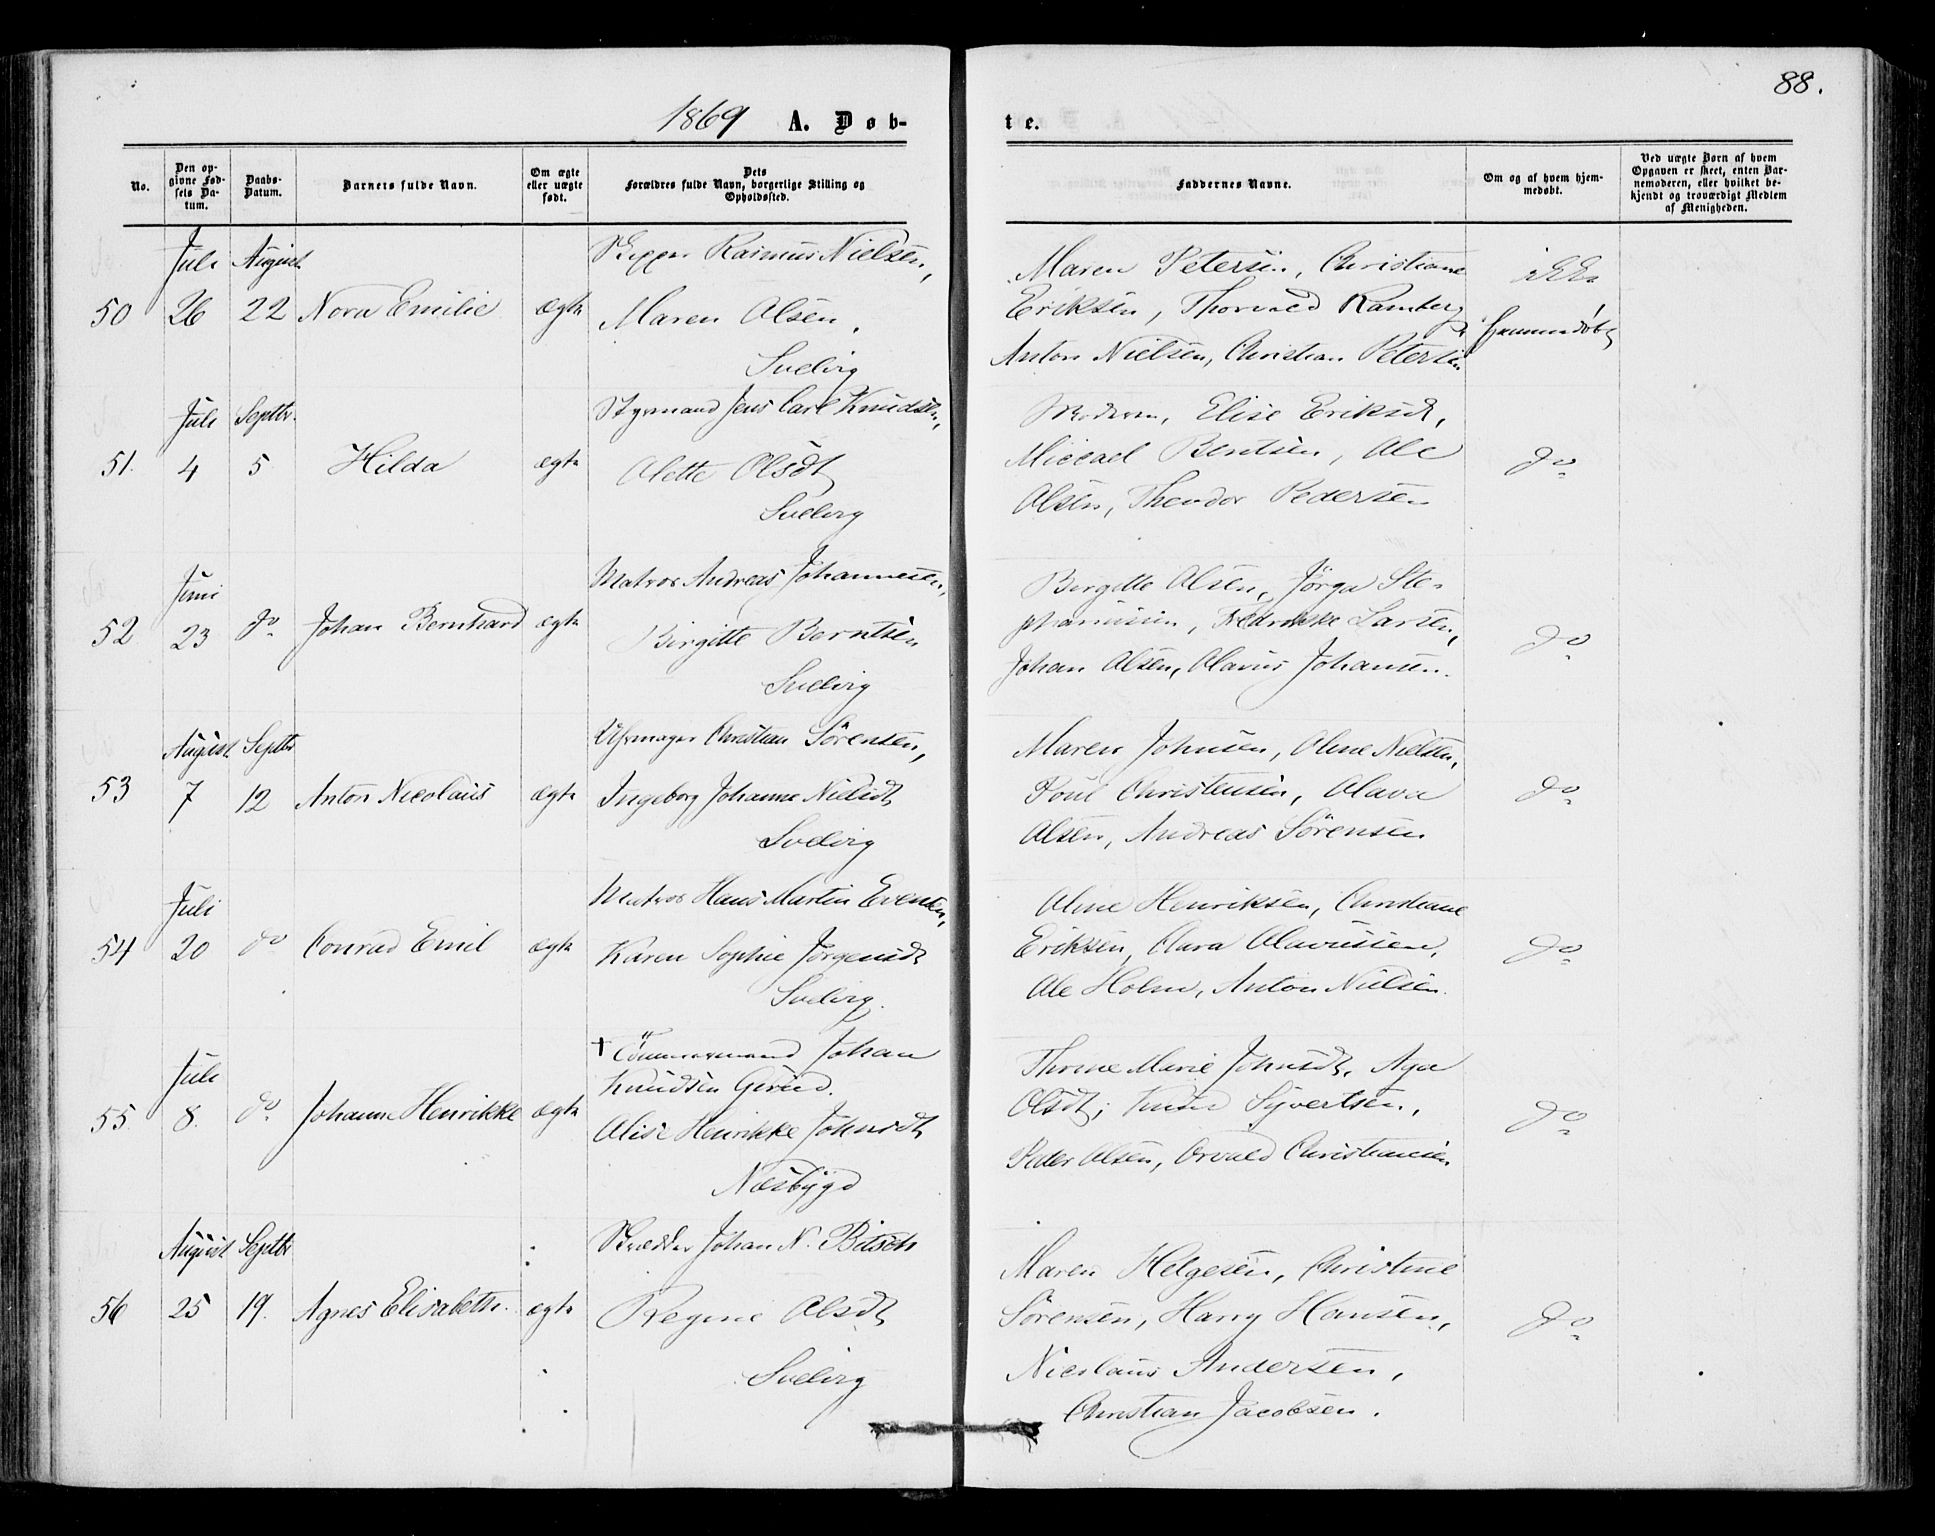 88.
1869 A. Døb-
te.
No.
Den op-
givne Fød-
sels Da-
tum.
Daabs-
Datum.
Barnets fulde Navn.
Om ægte
eller uægte
født.
Dets
Forældres fulde Navn, borgerlige Stilling og
Opholdssted.
Faddernes Navne.
Om og af hvem hjem-
medøbt.
Ved uægte Børn af hvem
Opgaven er skeet, enten Bar-
nemoderen, eller hvilket be-
kjendt og troværdigt Medlem
af Menigheden.
Juli August
50 26 22 Nora Emilie ægte
Skipper Rasmus Nielsen,
Maren Olsen,
Svelvig
Maren Petersen, Christiane
Eriksen, Thorvald Ramberg
Anton Nielsen, Christian Petersen
ikke
hjemmedøbt
Juli Septbr.
51. 4 5 Hilda ægte
Styrmand Jens Carl Knudsen,
Olette Olsdt
Svelvig
Moderen, Elise Eriksdt,
Micael Bentsen, Ole
Olsen, Theodor Pedersen
do
Juni
52 23 do Johan Bernhard ægte
Matros Andreas Johannesen,
Birgitte Berntsen
Svelvig
Birgitte Olsen, Jørga Ste-
phanisen, Fredrikke Larsen,
Johan Olsen, Olavus Johansen.
do
August Septbr
53 7 12 Anton Nicolaus ægte
Uhrmager Christian Sörensen,
Ingeborg Johanne Nielsdt
Svelvig
Maren Johnsen, Oline Nielsen,
Poul Christensen, Olava
Olsen, Andreas Sörensen
do
Juli
54 20 do Conrad Emil ægte
Matros Hans Martin Evensen,
Karen Sophie Jörgensdt
Svelvig.
Oline Henriksen, Christiane
Eriksen, Clara Olavussen,
Ole Holm, Anton Nielsen.
do
Juli
55. 8. do Johanne Henrikke ægte
† Tömmermand Johan
Knudsen
Elise Henrikke Johnsdt
Næsbygd
Thrine Marie Johnsdt, Aga
Olsdt, Syvertsen,
Peder Olsen, Orvald Christiansen
do
August Septbr
56 25 19. Agnes Elisabeth. ægte
Skrædder Johan N. Bitsch
Regine Olsdt
Svelvig
Maren Helgesen, Christine
Sörensen, Harry Hansen,
Nicolaus Andersen,
Christian Jacobsen.
do